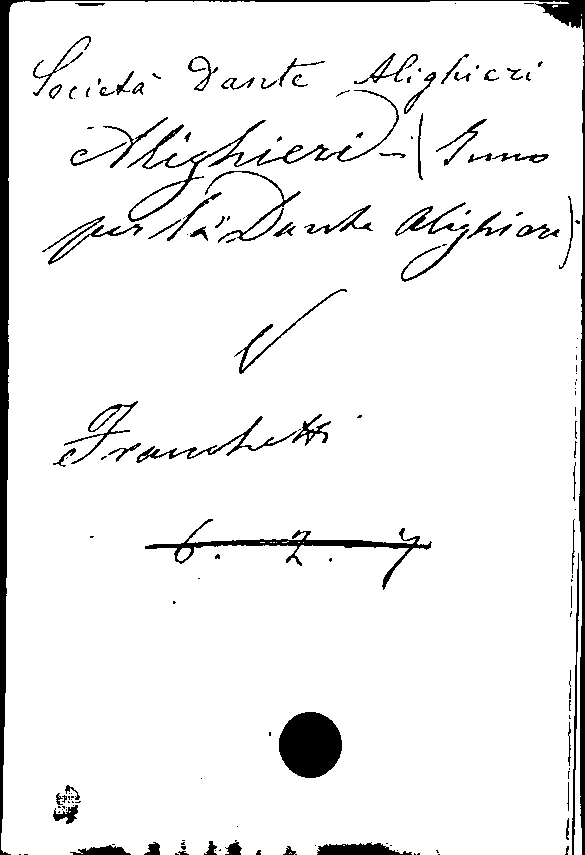 Società Dante Alighieri
Alighieri - (Inno
per la "Dante Alighieri)
V
Franchetti
6. 2. 7